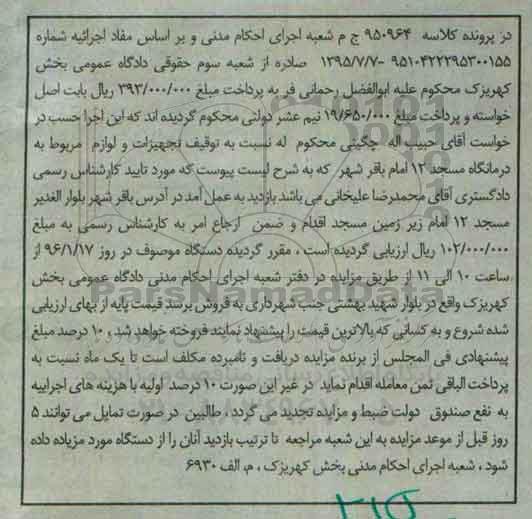 در پرونده کلاسه ۹۵۰۹۶۴ ج م شعبه اجرای احکام مدنی و بر اساس مفاد اجرائیه شماره
۹۵۱۰۴۲۲۲۳۹۵۳۰۰۱۵۵ -۱۳۹۵/۷/۷ صادره از شعبه سوم حقوقی دادگاه عمومی بخش
کهریزک محکوم علیه ابوالفضل رحمانی فر به پرداخت مبلغ ۳۹۳/۰۰۰/۰۰۰ ریال بابت اصل
خواسته و پرداخت مبلغ ۱۹/۶۵۰/۰۰۰ نیم عشر دولتی محکوم گردیده اند که این اجرا حسب در
خواست آقای حبیب اله چگینی محکوم له نسبت به توقیف تجهیزات و لوازم مربوط به
درمانگاه مسجد ۱۲ امام باقر شهر که به شرح لیست پیوست که مورد تایید کارشناس رسمی
دادگستری آقای محمدرضا علیخانی می باشد بازدید به عمل آمد در آدرس باقر شهر بلوار الغدیر
مسجد ۱۲ امام زیر زمین مسجد اقدام و ضمن ارجاع امر به کارشناس رسمی به مبلغ
۱۰۲/۰۰۰/۰۰۰ ریال ارزیابی گردیده است ، مقرر گردیده دستگاه موصوف در روز ۹۶/۱/۱۷ از
ساعت ۱۰ الی ۱۱ از طریق مزایده در دفتر شعبه اجرای احکام مدنی دادگاه عمومی بخش
کهریزک واقع در بلوار شهید بهشتی جنب شهرداری به فروش برسد قیمت پایه از بهای ارزیابی
شده شروع و به کسانی که بالاترین قیمت را پیشنهاد نمایند فروخته خواهد شد ، ۱۰ درصد مبلغ
پیشنهادی فی المجلس از برنده مزایده دریافت و نامبرده مکلف است تا یک ماه نسبت به
پرداخت الباقی ثمن معامله اقدام نماید در غیر این صورت ۱۰ درصد اولیه با هزینه های اجراییه
به نفع صندوق دولت ضبط و مزایده تجدید می گردد ، طالبین در صورت تمایل می توانند ۵
روز قبل از موعد مزایده به این شعبه مراجعه تا ترتیب بازدید آنان را از دستگاه مورد مزیاده داده
شود ، شعبه اجرای احکام مدنی بخش کهریزک ، م. الف ۶۹۳۰
ParsNamadData